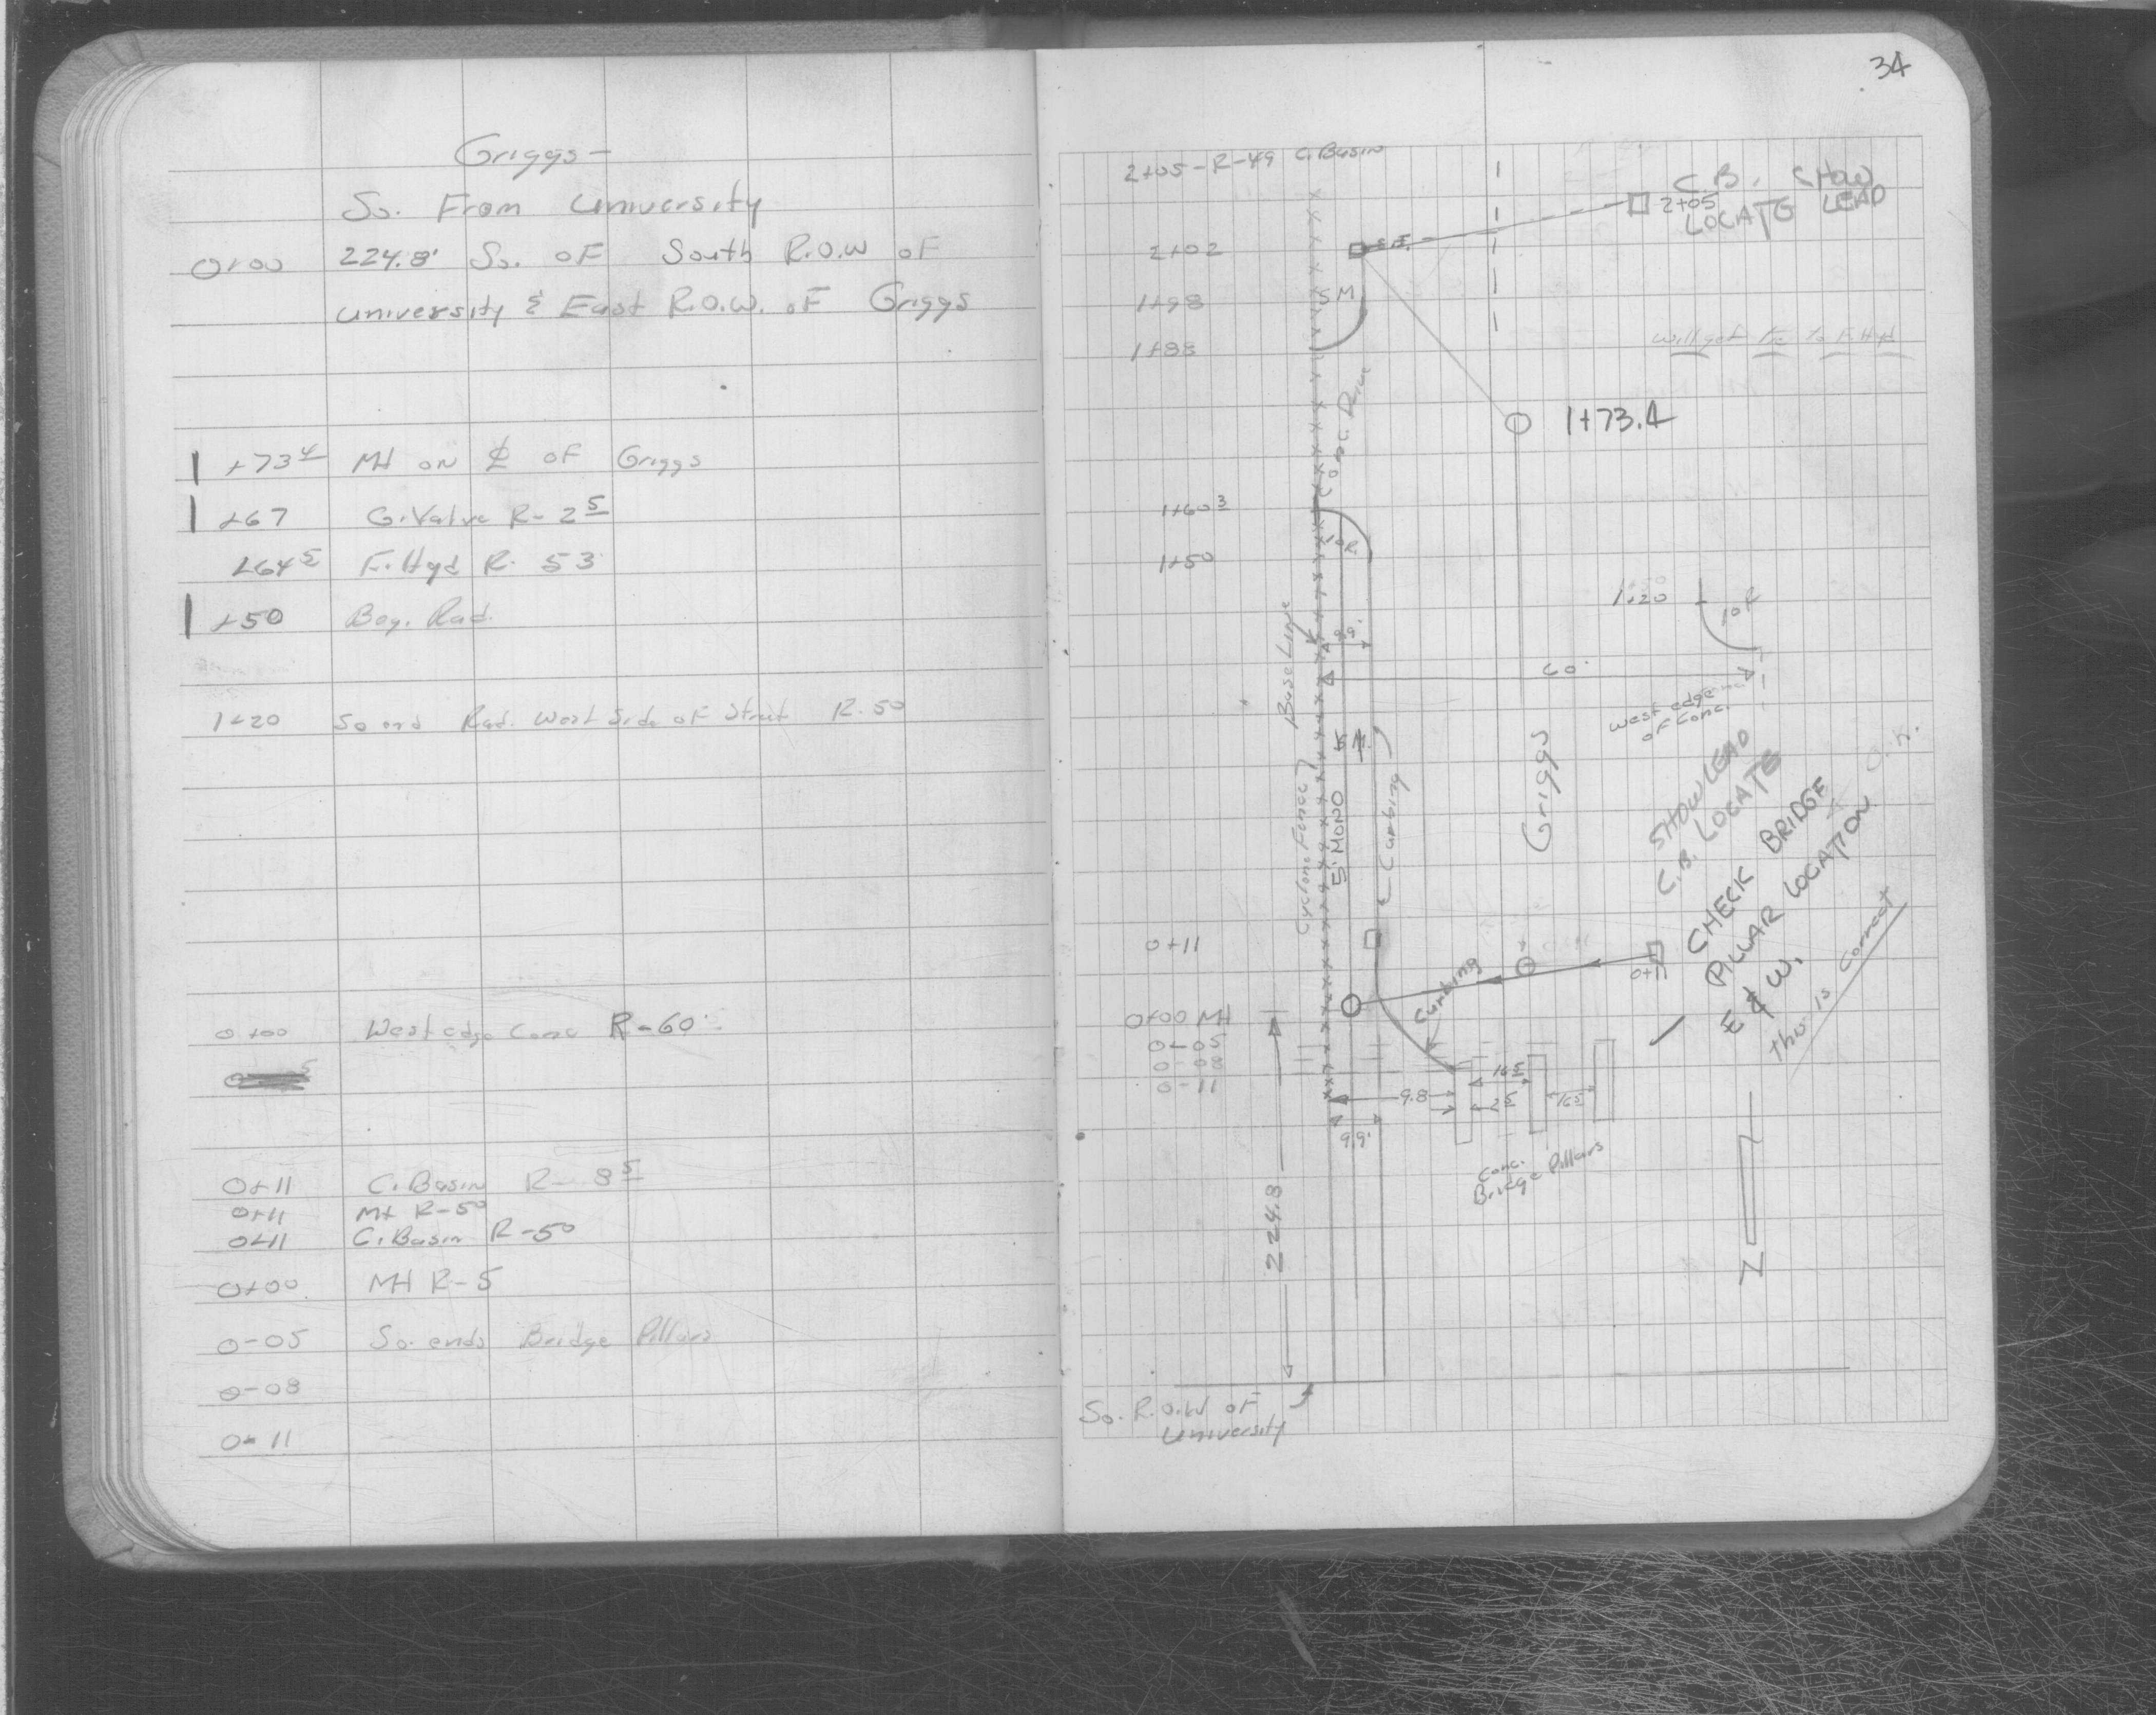 Griggs -
So. From University
0+00 224.8' So. of South R.O.W of
University & East R.O.W. of Griggs
1 +73 4 MH on ℄ of Griggs
1 +67 G.Valve R- 2 5
+64 5 F.Hyd R. 53
1 +50 Beg. Rad.
1+20 So end Rad. West Side of Street R.50
0+00 West edge Conc R-60'
0+11 C.Basin R- 8 5
0+11 MH R-50
0+11 C.Basin R-50
0+00 MH R-5
0-05 So. ends Bridge Pillars
0-08
0-11
34
2+05-R-49 C.Basin
C.B. SHOW
2+05
LOCATE LEAD
2+02
1+98
5 M
1+88
Will get to F.Hyd
Conc. Drive
1+73.4
1+60 3
10R
1+50
1+20
10R
Base Line
60'
West edge
of Conc.
5 M.
Griggs
Cyclone Fence
5' MONO
Curbing
SHOW LEAD
C.B. LOCATE
CHECK BRIDGE
PILLAR LOCATION
E & W.
O.K.
This is Correct
0+11
0+11
Curbing
0+00 MH
0-05
0-08
0-11
16 5
9.8
2 5
16 5
9.9'
Conc.
Bridge Pillars
224.8
So. R.O.W of
University